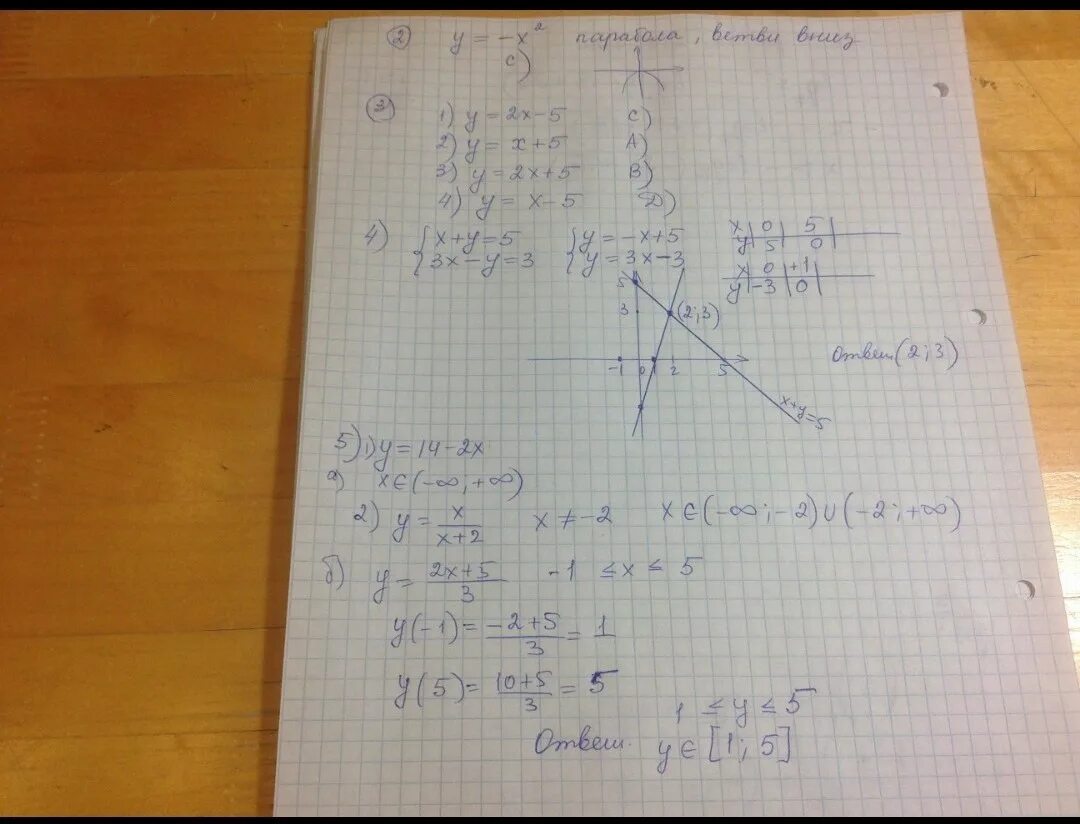 2 y = -x² парабола, ветви вниз
c)
3
1) y = 2x-5 C)
2) y = x+5 A)
3) y = 2x+5 B)
4) y = x-5 D)
4) { x+y=5 { y=-x+5
3x-y=3 y=3x-3
x | 0 | 5 |
y | 5 | 0 |
x | 0 | +1 |
y | -3 | 0 |
5
3 (2;3)
-1 0 1 2 5
x+y=5
Ответ (2;3)
5) 1) y=14-2x
а) x∈(-∞;+∞)
2) y = x/(x+2) x ≠ -2 x∈(-∞;-2)∪(-2;+∞)
б) y = (2x+5)/3 -1 ≤ x ≤ 5
y(-1) = (-2+5)/3 = 1
y(5) = (10+5)/3 = 5
1 ≤ y ≤ 5
Ответ. y∈[1;5]